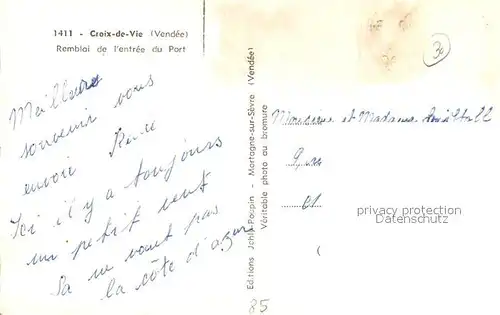 1411 - Croix-de-Vie (Vendée)
Remblai de l'entrée du Port
30
Meilleure
souvenir vous
envoi René
Ici il y a toujours
un petit vent
Sa ne vaut pas
la côte d'azur
Editions Jehly-Poupin - Mortagne-sur-Sèvre (Vendée)
Véritable photo au bromure
Monsieur et Madame
privacy protection
Datenschutz
85